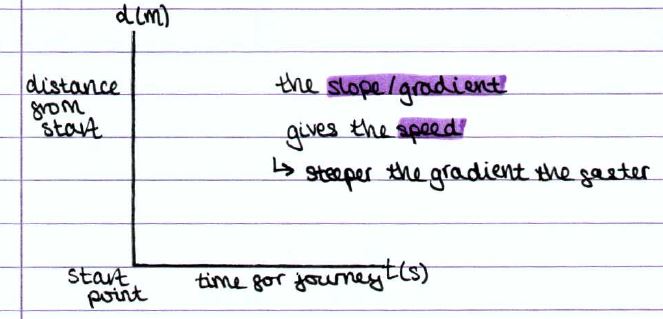 d(m)
distance
from
start
the slope/gradient
gives the speed
↳ steeper the gradient the faster
start
point
time for journey t(s)